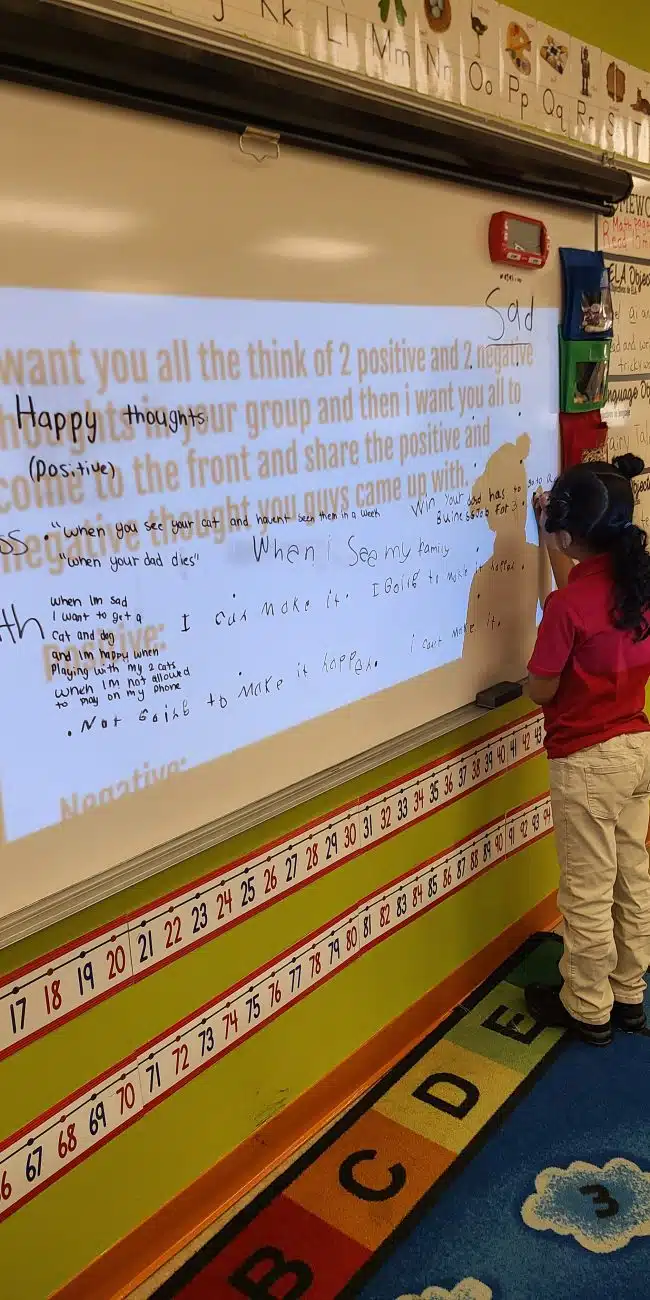 J Kk Ll Mm Nn Oo Pp Qq Rr S T
Sad
want you all the think of 2 positive and 2 negative
thoughts in your group and then i want you all to
come to the front and share the positive and
negative thought you guys came up with.
Happy thoughts
(Positive)
"when you see your cat and havent seen them in a week
"when your dad dies"
When i See my family
Win your dad has to go to a
Buinessjob for 3
When Im sad
I want to get a
cat and dog
and im happy when
Playing with my 2 cats
When I'M not allowed
to play on my phone
th
I can Make it. I Going to make it happen.
Positive:
Not Going to Make it happen. i can't make it.
Negative:
HOMEWO
Math pag
Read
ELA Obje
17 18 19 20 21 22 23 24 25 26 27 28 29 30 31 32 33 34 35 36 37 38 39 40 41 42 43
6 67 68 69 70 71 72 73 74 75 76 77 78 79 80 81 82 83 84 85 86 87 88 89 90 91 92 93 94
E
D
C
B
3